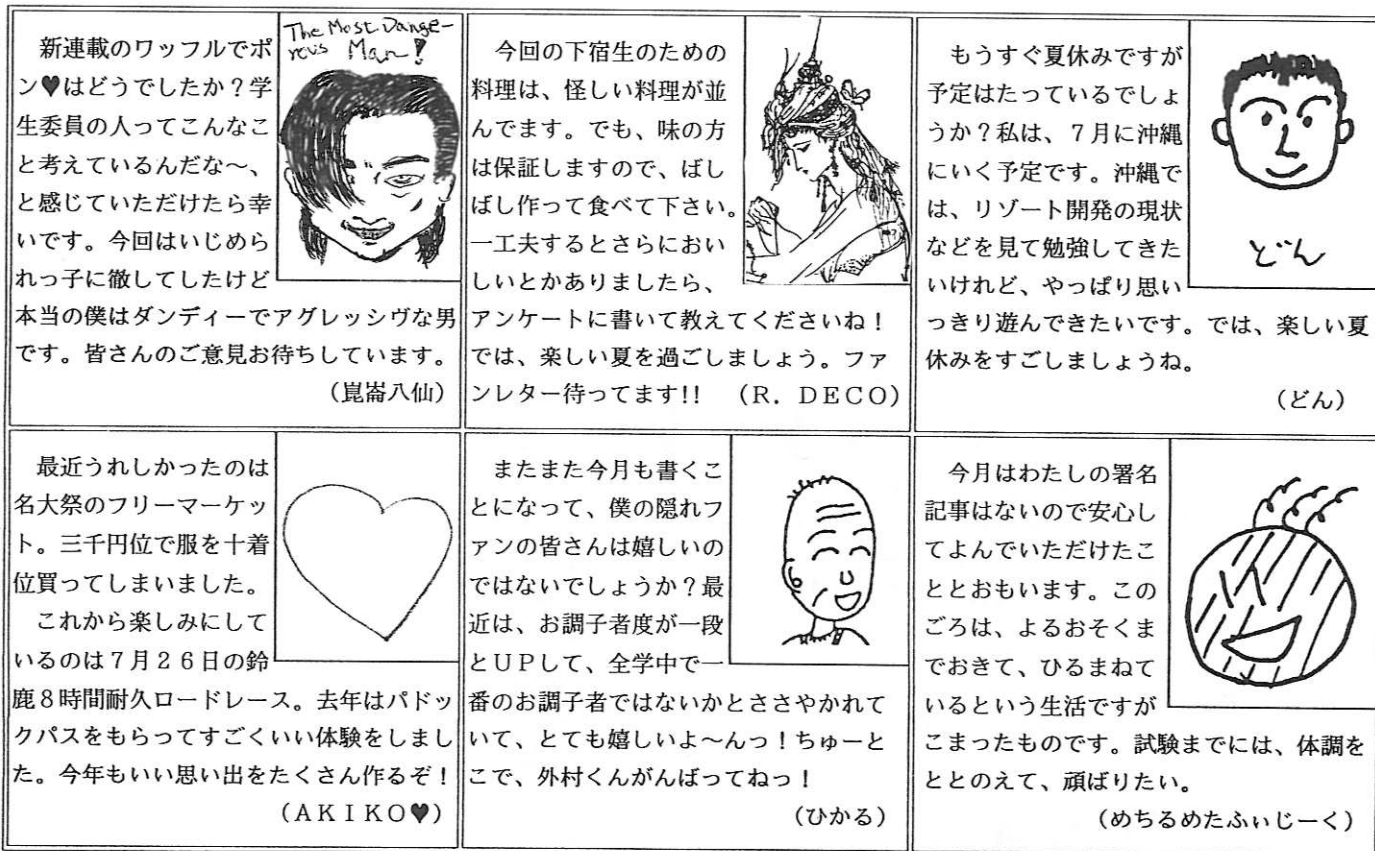 新連載のワッフルでポ
ン♥はどうでしたか？学
生委員の人ってこんなこ
と考えているんだな～、
と感じていただけたら幸
いです。今回はいじめら
れっ子に徹してしたけど
本当の僕はダンディーでアグレッシヴな男
です。皆さんのご意見お待ちしています。
（崑崙八仙）
The Most Dange-
rous Man!
今回の下宿生のための
料理は、怪しい料理が並
んでます。でも、味の方
は保証しますので、ばし
ばし作って食べて下さい。
一工夫するとさらにおい
しいとかありましたら、
アンケートに書いて教えてくださいね！
では、楽しい夏を過ごしましょう。ファ
ンレター待ってます!!　（Ｒ．ＤＥＣＯ）
もうすぐ夏休みですが
予定はたっているでしょ
うか？私は、７月に沖縄
にいく予定です。沖縄で
は、リゾート開発の現状
などを見て勉強してきた
いけれど、やっぱり思い
っきり遊んできたいです。では、楽しい夏
休みをすごしましょうね。
（どん）
どん
最近うれしかったのは
名大祭のフリーマーケッ
ト。三千円位で服を十着
位買ってしまいました。
これから楽しみにして
いるのは７月２６日の鈴
鹿８時間耐久ロードレース。去年はパドッ
クパスをもらってすごくいい体験をしまし
た。今年もいい思い出をたくさん作るぞ！
（ＡＫＩＫＯ♥）
またまた今月も書くこ
とになって、僕の隠れフ
ァンの皆さんは嬉しいの
ではないでしょうか？最
近は、お調子者度が一段
とＵＰして、全学中で一
番のお調子者ではないかとささやかれて
いて、とても嬉しいよ～んっ！ちゅーと
こで、外村くんがんばってねっ！
（ひかる）
今月はわたしの署名
記事はないので安心し
てよんでいただけたこ
ととおもいます。この
ごろは、よるおそくま
でおきて、ひるまねて
いるという生活ですが
こまったものです。試験までには、体調を
ととのえて、頑ばりたい。
（めちるめたふぃじーく）